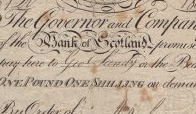 The Governor and Compan
of the Bank of Scotland promise
pay here to Geo: Sandy or the Be
ONE POUND ONE SHILLING on deman
By Order of